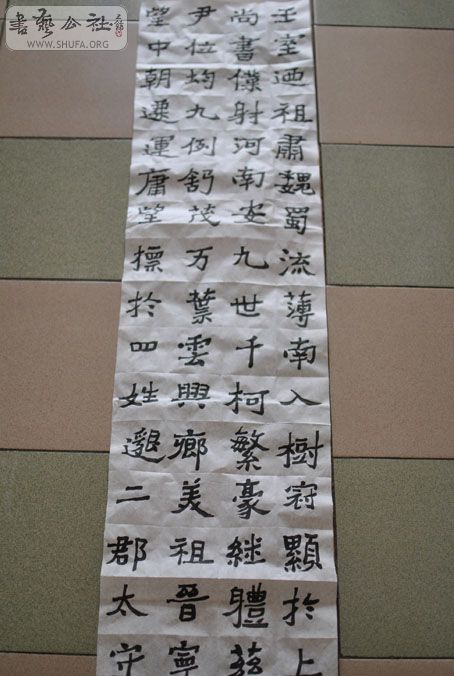 書藝公社
WWW.SHUFA.ORG
王室迺祖肅魏蜀流薄南入樹冠顯於上
尚書僕射河南安九世千柯繁豪継體兹
尹位均九例舒茂万葉雲興鄉美祖晉寧
望中朝遷運庸望摽於四姓邈二郡太守